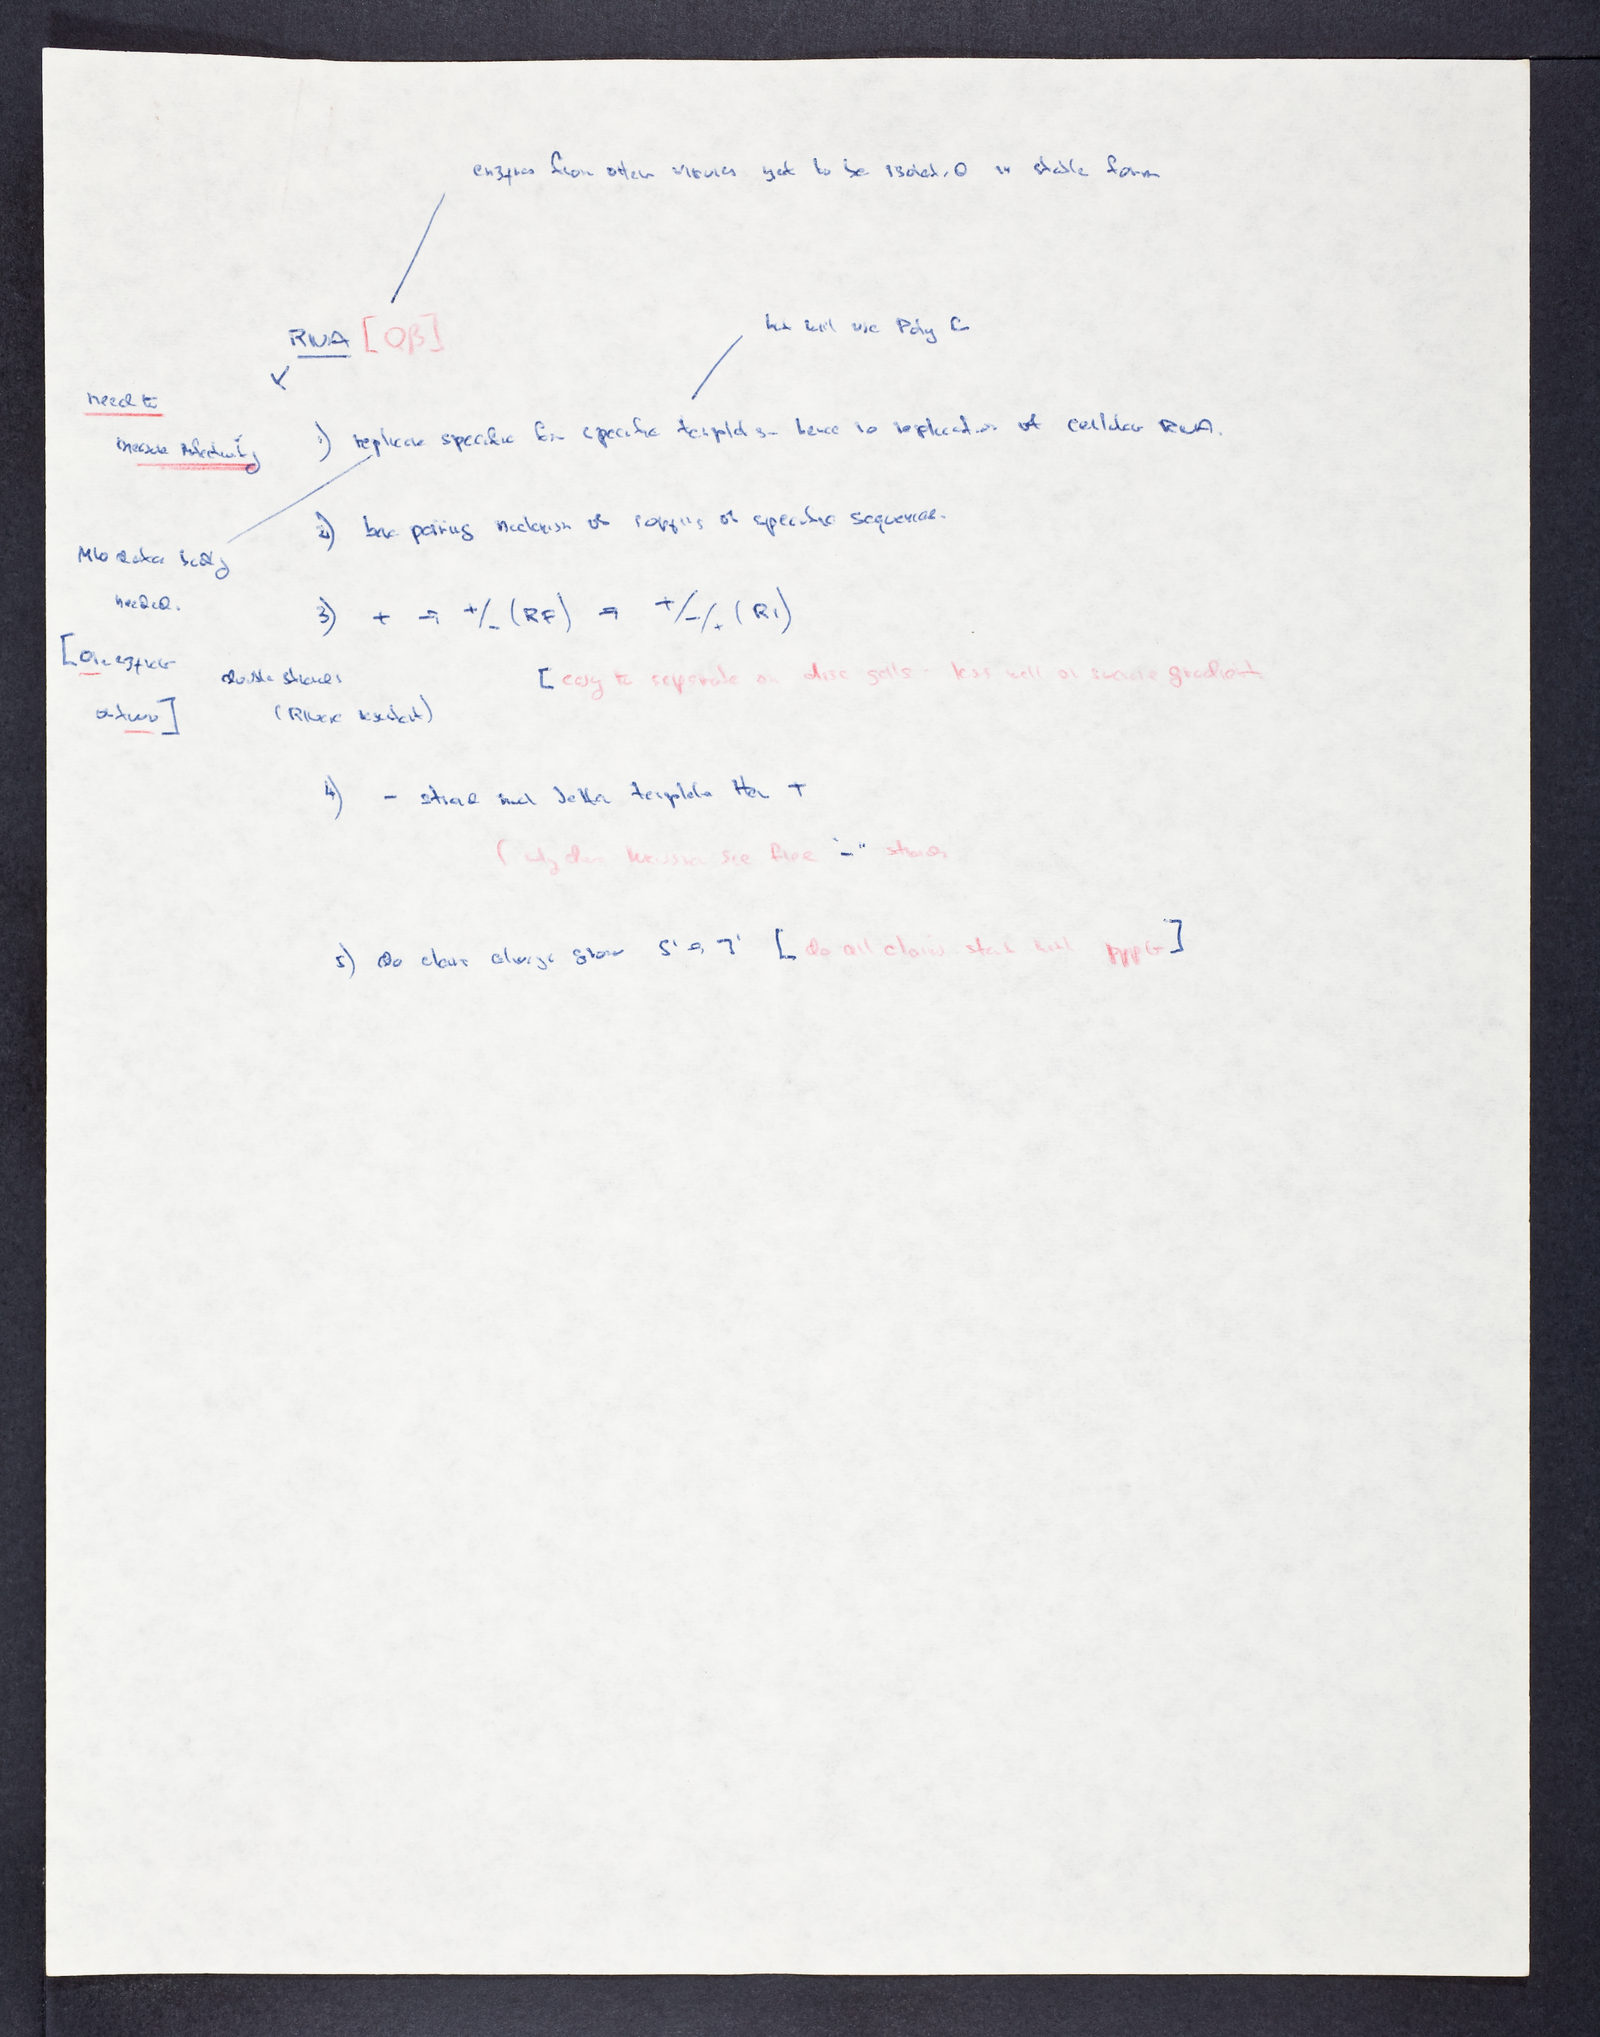 enzymes from other viruses yet to be isolated in stable form
RNA [Qβ]
but will use Poly C
need to
increase infectivity
1) replicase specific for specific templates - hence no replication of cellular RNA.
2) base pairing mechanism of copying of specific sequences.
needed.
3) + → +/- (RF) → +/-/+ (RI)
[One enzyme
or two]
double stranded
(RNase resistant)
[easy to separate on disc gells - less well on sucrose gradient
4) - strand much better template than +
(why does see free "-" strands
5) do chains always grow 5' → 3' [do all chains start with pppG]